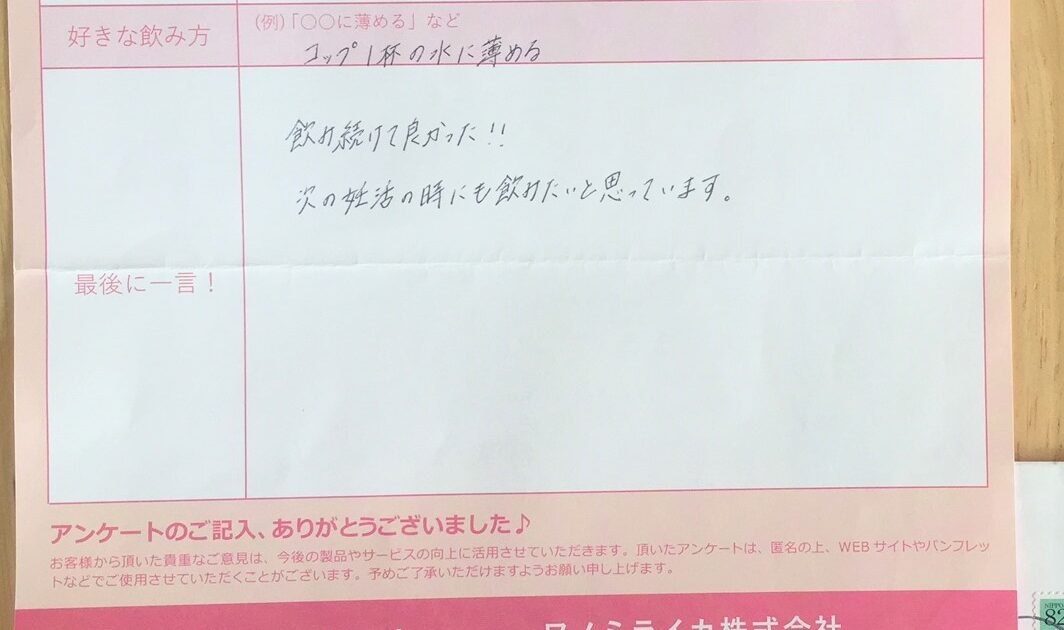 好きな飲み方
(例)「〇〇に薄める」など
コップ1杯の水に薄める
飲み続けて良かった!!
次の妊活の時にも飲みたいと思っています。
最後に一言!
アンケートのご記入、ありがとうございました♪
お客様から頂いた貴重なご意見は、今後の製品やサービスの向上に活用させていただきます。頂いたアンケートは、匿名の上、WEBサイトやパンフレッ
トなどでご使用させていただくことがございます。予めご了承いただけますようお願い申し上げます。
株式会社
NIPPO
82